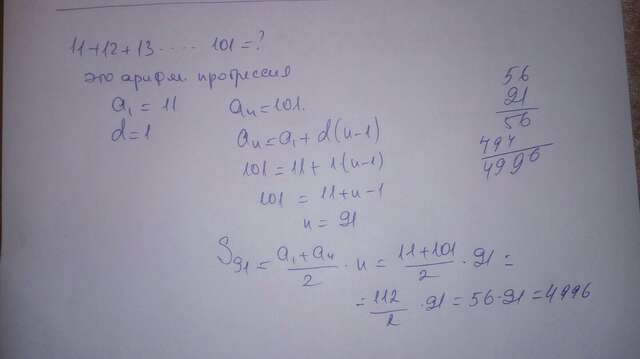 11+12+13..... 101=?
это арифм. прогрессия
a₁ = 11 aₙ=101.
d=1 aₙ=a₁+d(n-1)
101=11+1(n-1)
101 = 11+n-1
n = 91
S₉₁ = (a₁+aₙ)/2 · n = (11+101)/2 · 91 =
= 112/2 · 91 = 56·91 = 4996
56
91
56
494
4996